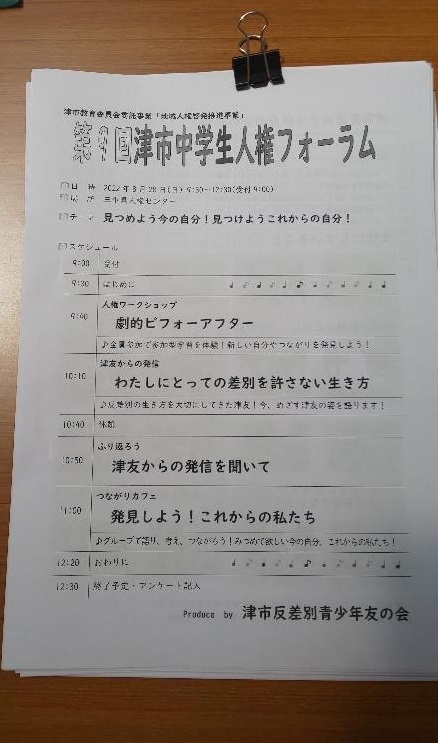 津市教育委員会委託事業「地域人権啓発推進事業」
回津市中学生人権フォーラム
日 時 2022年8月28日(日) 9:30~12:30(受付 9:00)
場 所 三重県人権センター
テーマ 見つめよう今の自分！見つけようこれからの自分！
スケジュール
9:00 受付
9:30 はじめに
9:40 人権ワークショップ
劇的ビフォーアフター
♪全員参加で参加型学習を体験！新しい自分やつながりを発見しよう！
10:10 津友からの発信
わたしにとっての差別を許さない生き方
♪反差別の生き方を大切にしてきた津友！今、めざす津友の姿を語ります！
10:40 休憩
10:50 ふり返ろう
津友からの発信を聞いて
11:00 つながりカフェ
発見しよう！これからの私たち
♪グループで語り、考え、つながろう！みつめて欲しい今の自分、これからの私たち！
12:20 おわりに
12:30 終了予定・アンケート記入
Produce by 津市反差別青少年友の会